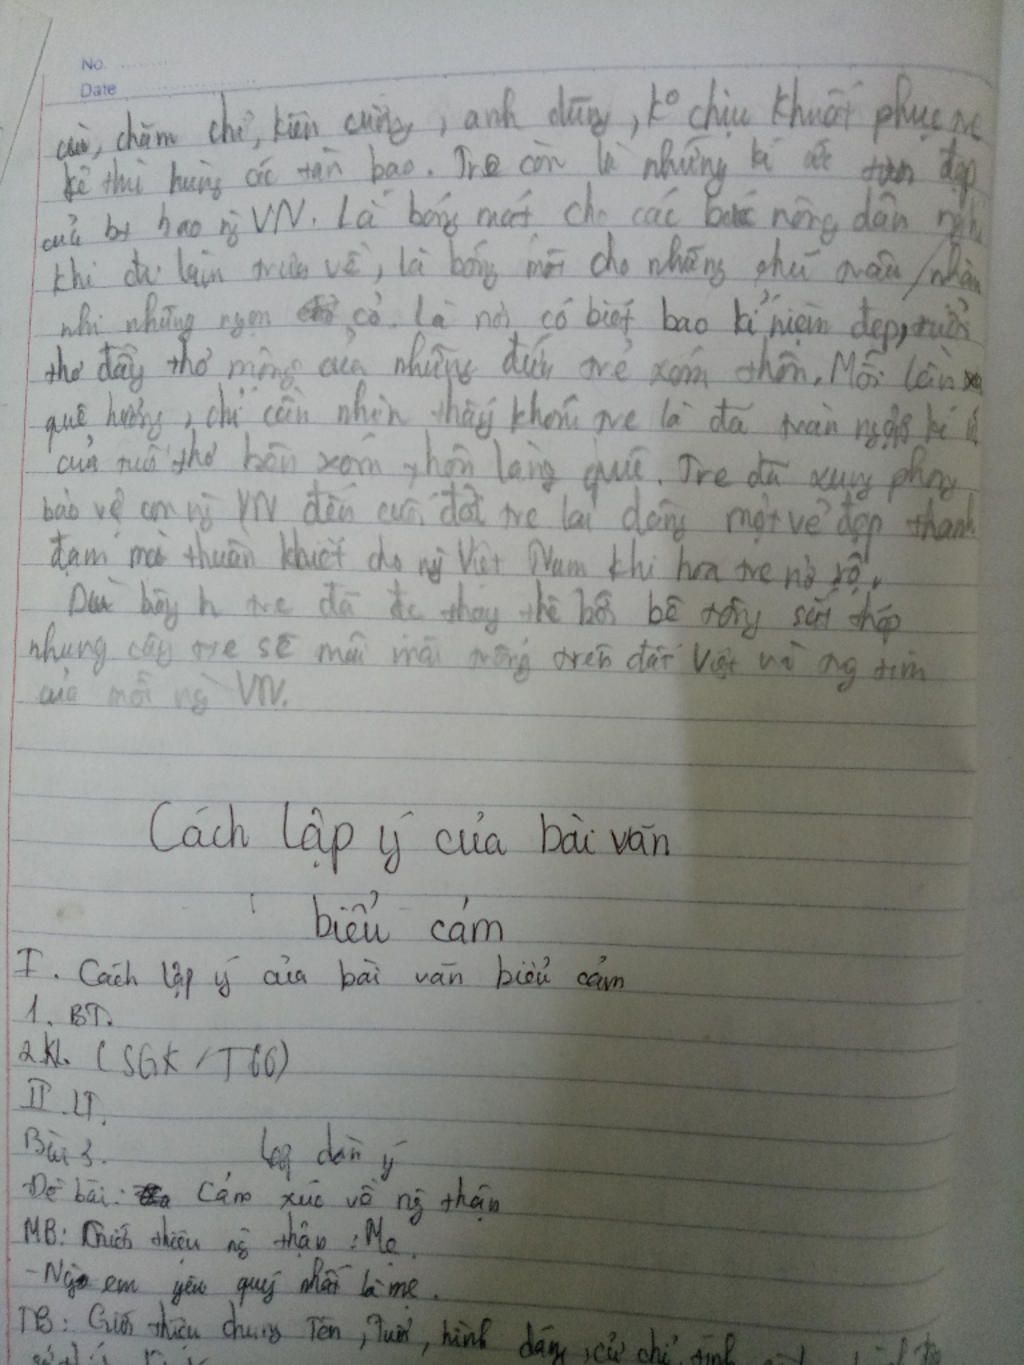 No.
Date
cù, chăm chỉ, kiên cường, anh dũng, ko chịu khuất phục
kẻ thù hung ác tàn bạo. Tre còn là những kí ức đẹp
của bao ng VN. Là bóng mát cho các bác nông dân
khi đi làm về, là bóng mát cho những chú trâu
nhi những ngọn cỏ. Là nơi có biết bao kỉ niệm đẹp, tuổi
thơ đầy thơ mộng của những đứa trẻ xóm thôn. Mỗi lần
quê hương, chỉ cần nhìn thấy khóm tre là đã tràn ngập kí
của tuổi thơ bên xóm thôn làng quê. Tre đã xung phong
bảo vệ con ng VN đến cuối đời tre lại dâng một vẻ đẹp thanh
đạm mà thuần khiết cho ng Việt Nam khi hoa tre nở rộ.
Dù bây h tre đã đc thay thế bởi bê tông sắt thép
nhưng cây tre sẽ mãi mãi trên đất Việt và tim
của mỗi ng VN.
Cách lập ý của bài văn
biểu cảm
I. Cách lập ý của bài văn biểu cảm
1. BT.
2. KL. (SGK/T66)
II. LT.
Bài 3. Lập dàn ý
Đề bài: Cảm xúc về ng thân
MB: Giới thiệu ng thân: Mẹ.
- Ng em yêu quý nhất là mẹ.
TB: Giới thiệu chung Tên, Tuổi, hình dáng, cử chỉ, tính